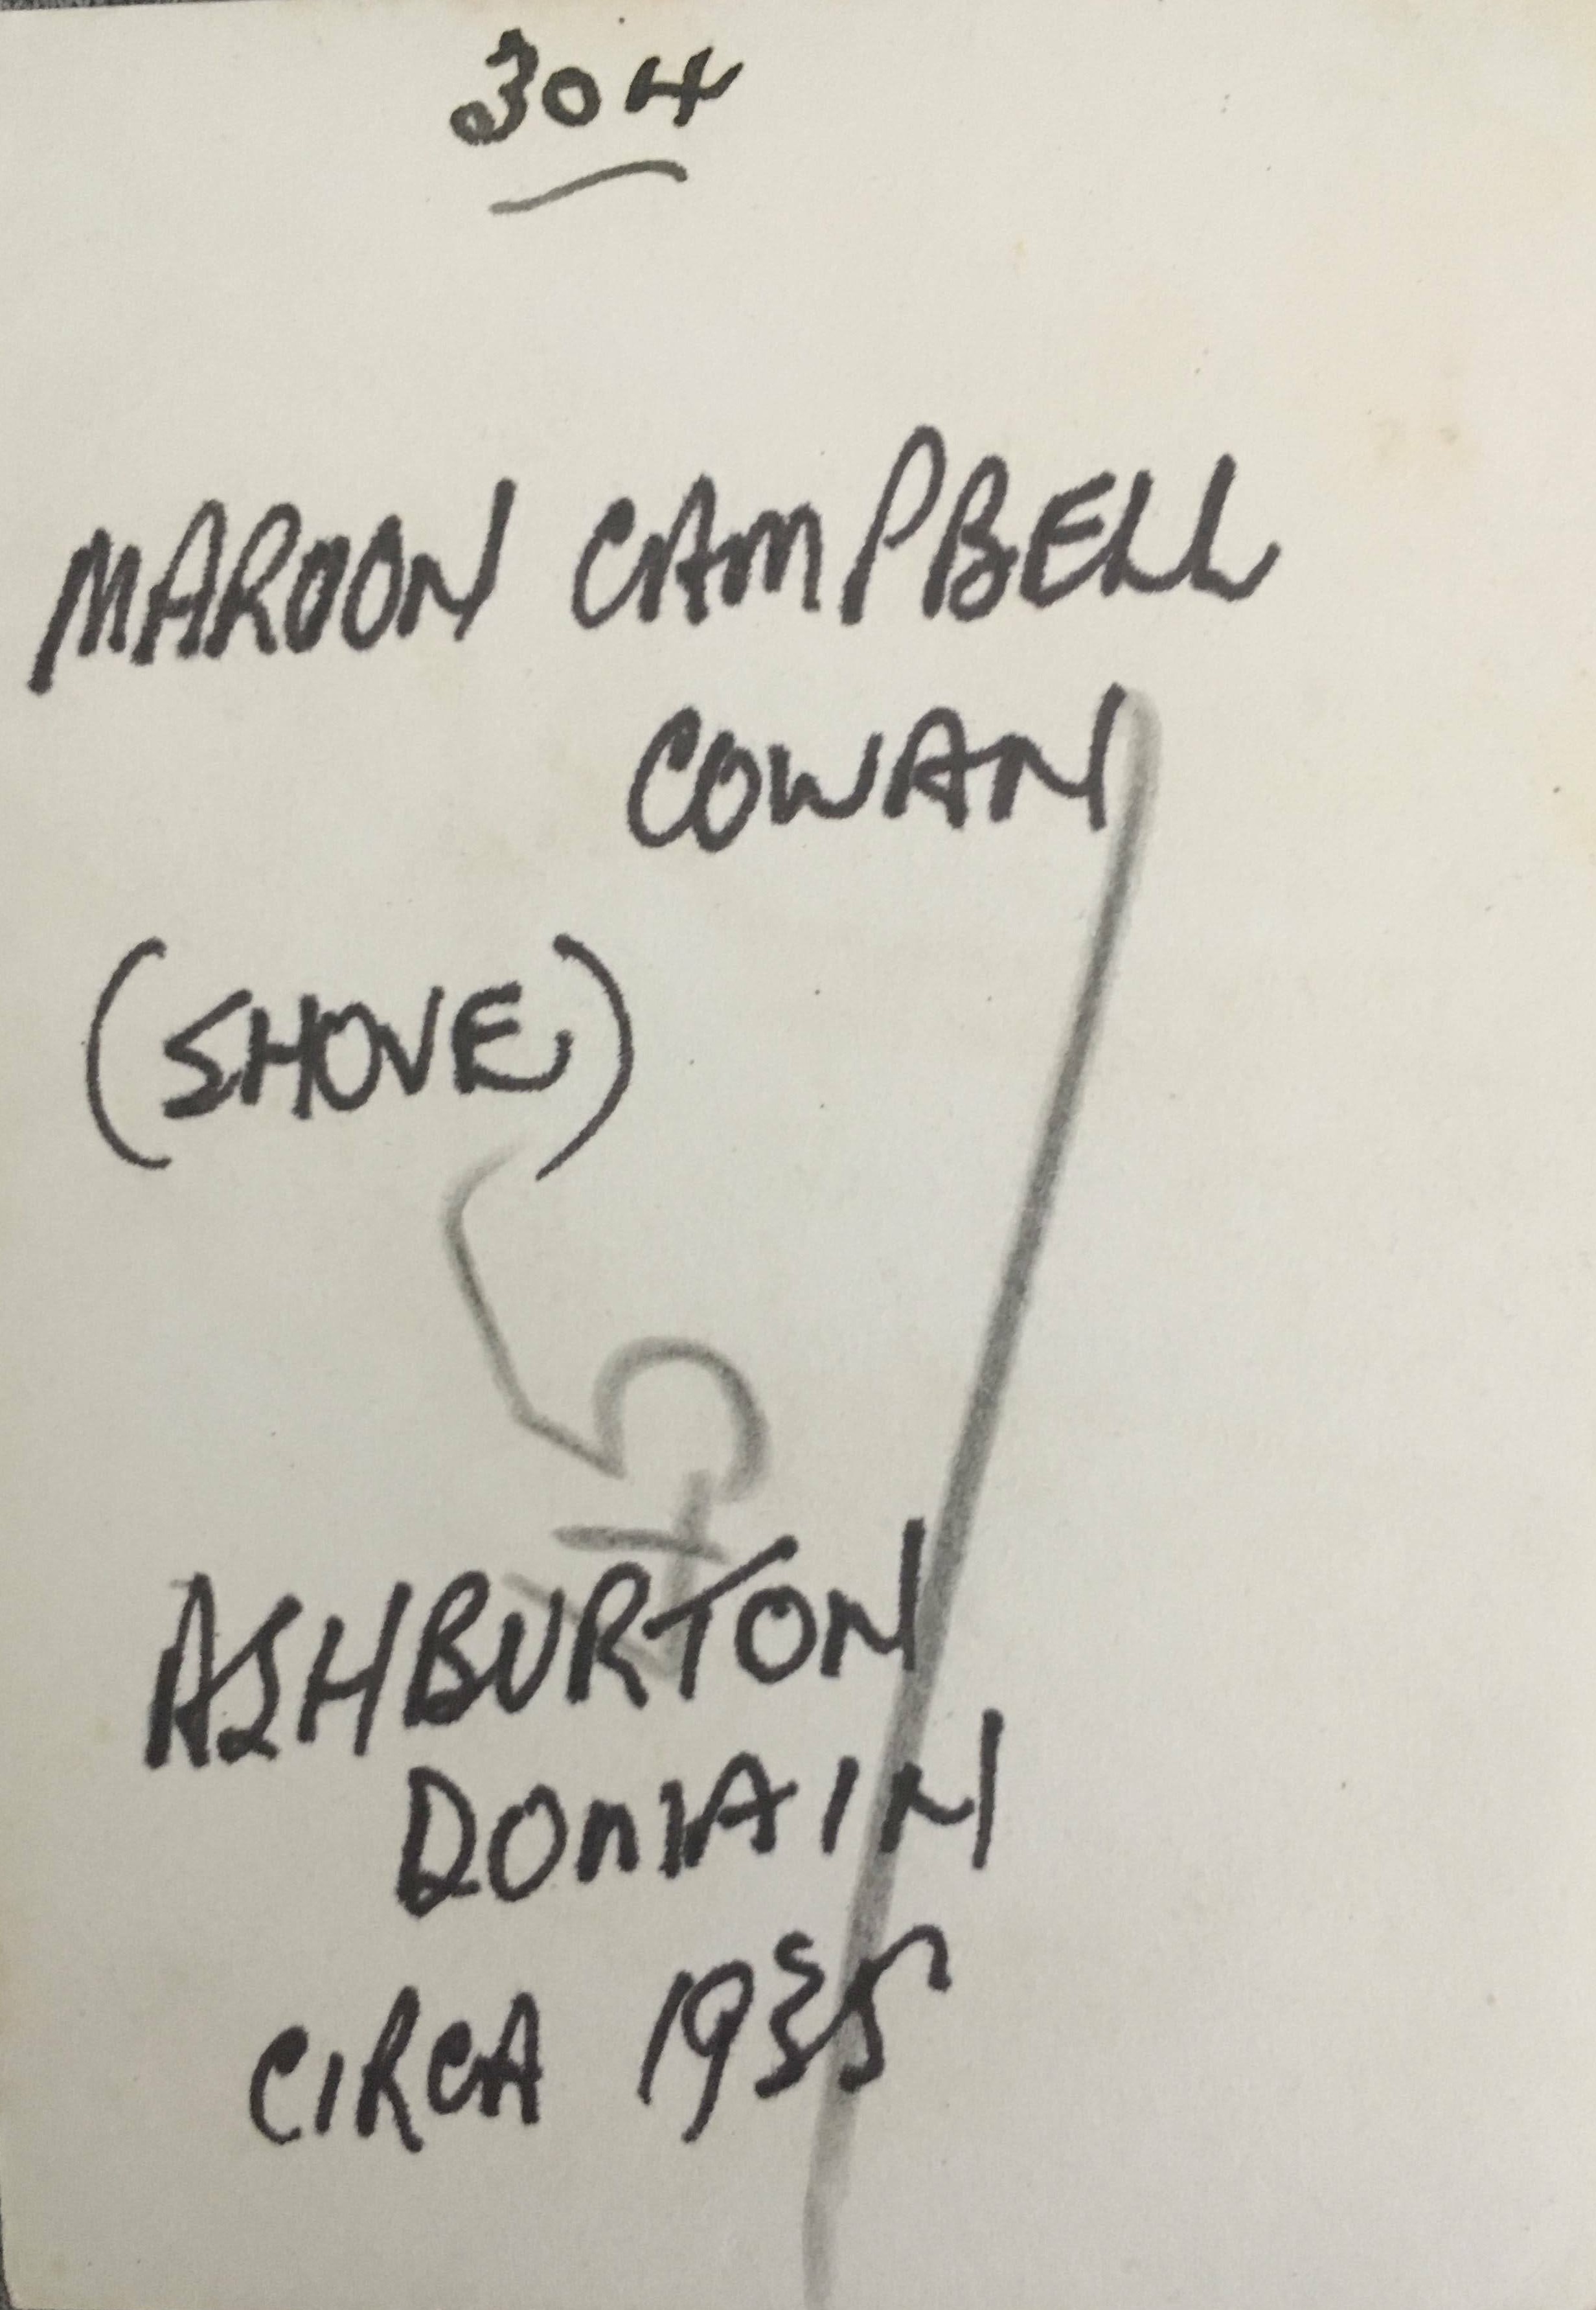 304
MAROON CAMPBELL
COWAN
(SHOVE)
ASHBURTON
DOMAIN
CIRCA 1935